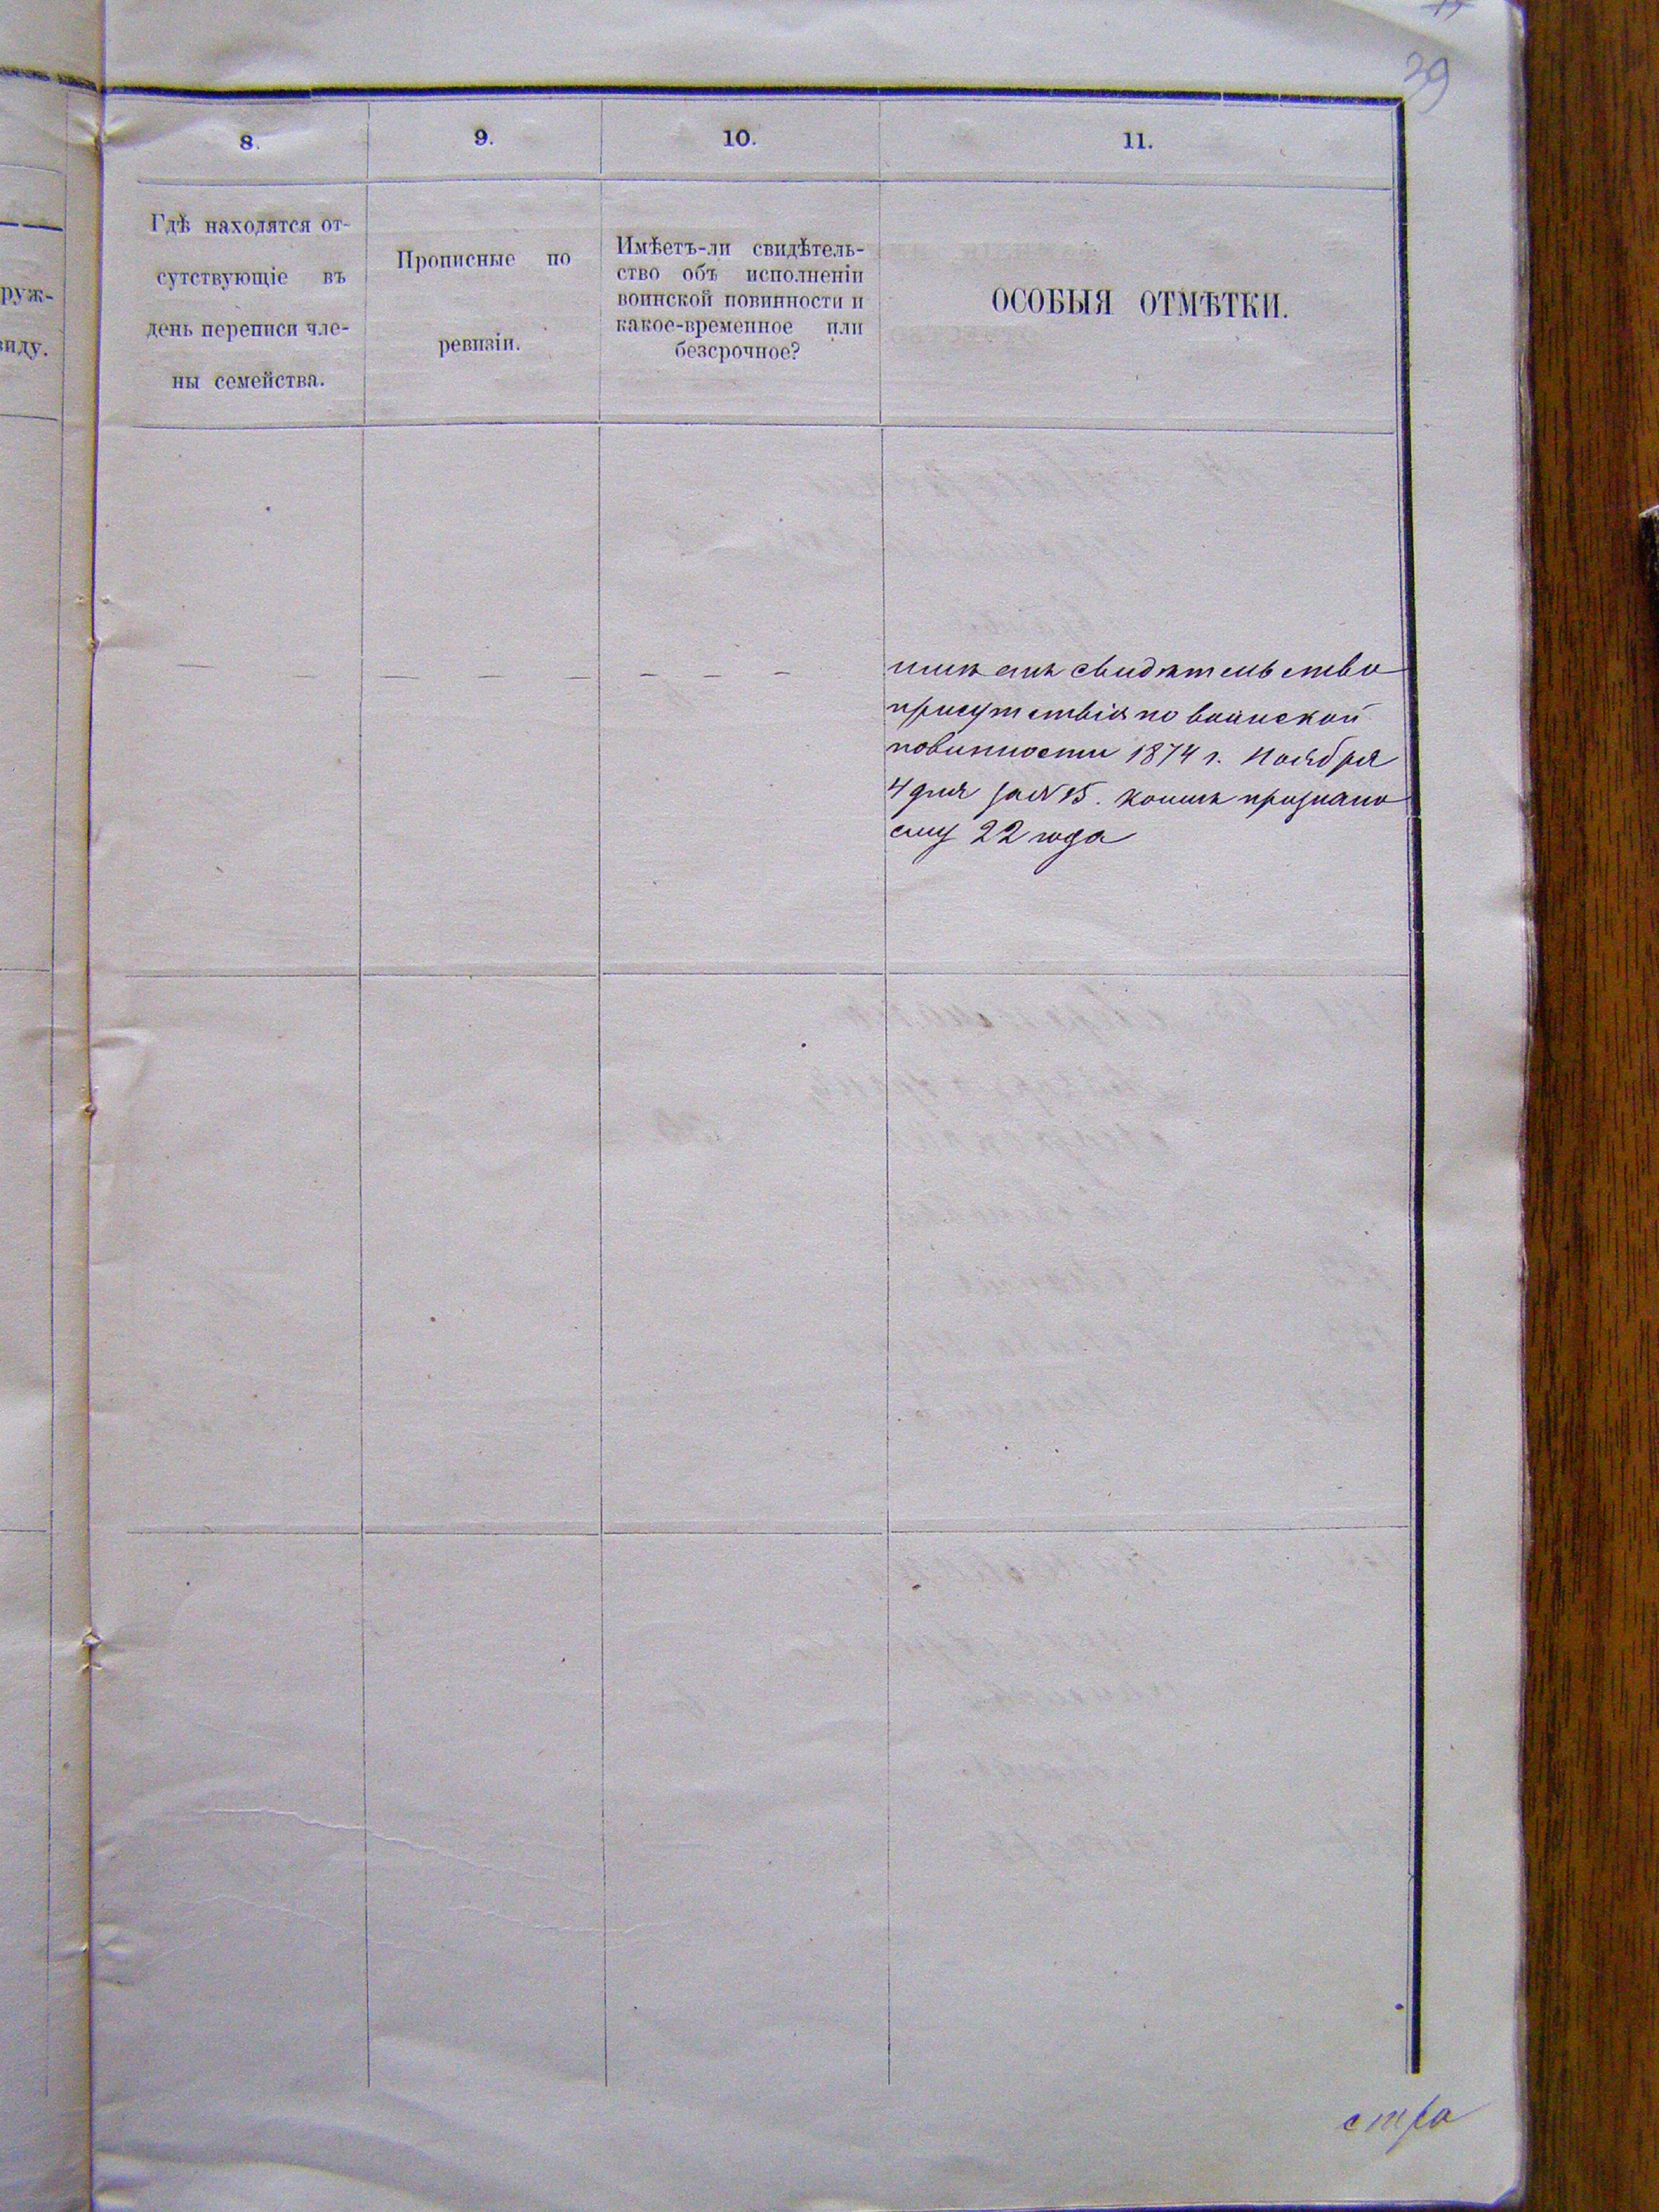 39
8.
9.
10.
11.
руж-
виду.
Гдѣ находятся от-
сутствующіе въ
день переписи чле-
ны семейства.
Прописные по
ревизіи.
Имѣетъ-ли свидѣтель-
ство объ исполненіи
воинской повинности и
какое-временное или
безсрочное?
ОСОБЫЯ ОТМѢТКИ.
свидѣтельство
присутствія по воинской
повинности 1874 г. Ноября
4 дня за № 15. коимъ признано
ему 22 года
стра